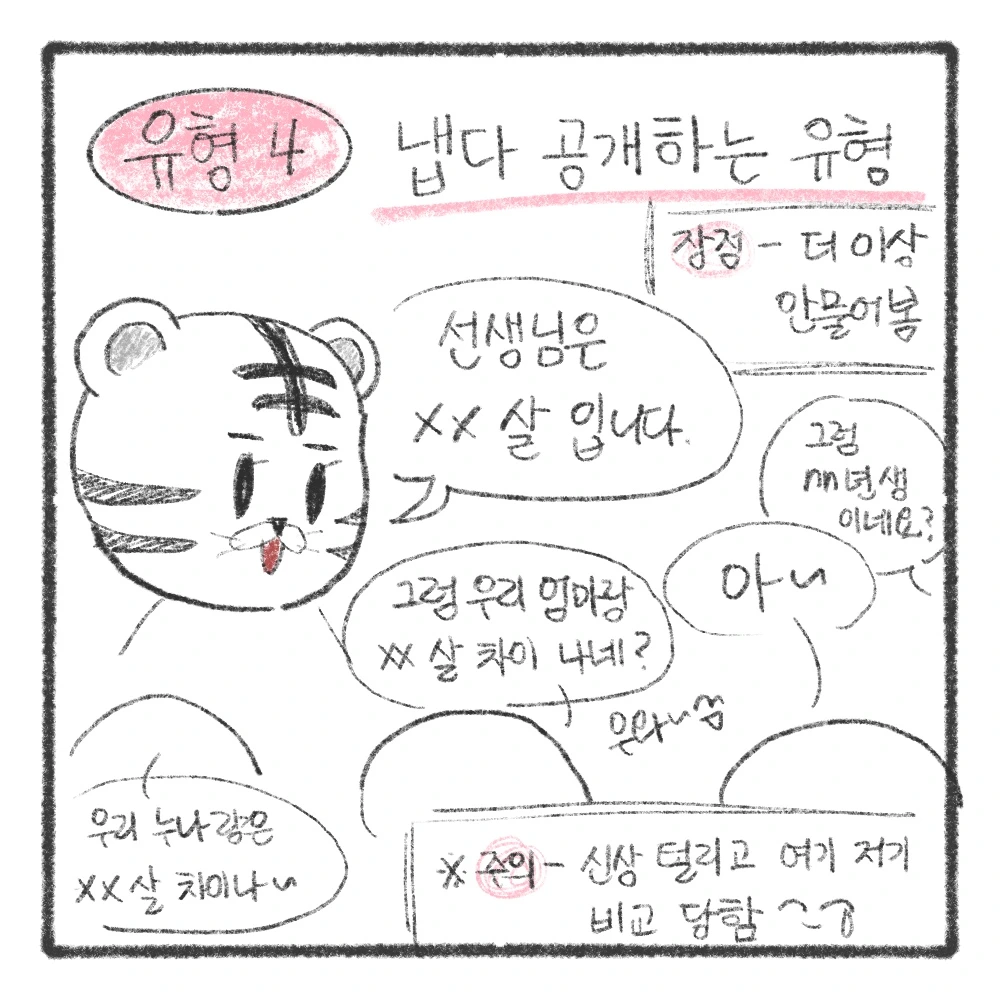 유형 4
냅다 공개하는 유형
장점 - 더 이상
안물어봄
선생님은
XX 살 입니다.
그럼
nn년생
이네요?
아~
그럼 우리 엄마랑
XX 살 차이 나네?
우와~
우리 누나랑은
XX 살 차이나~
※ 주의 - 신상 털리고 여기 저기
비교 당함